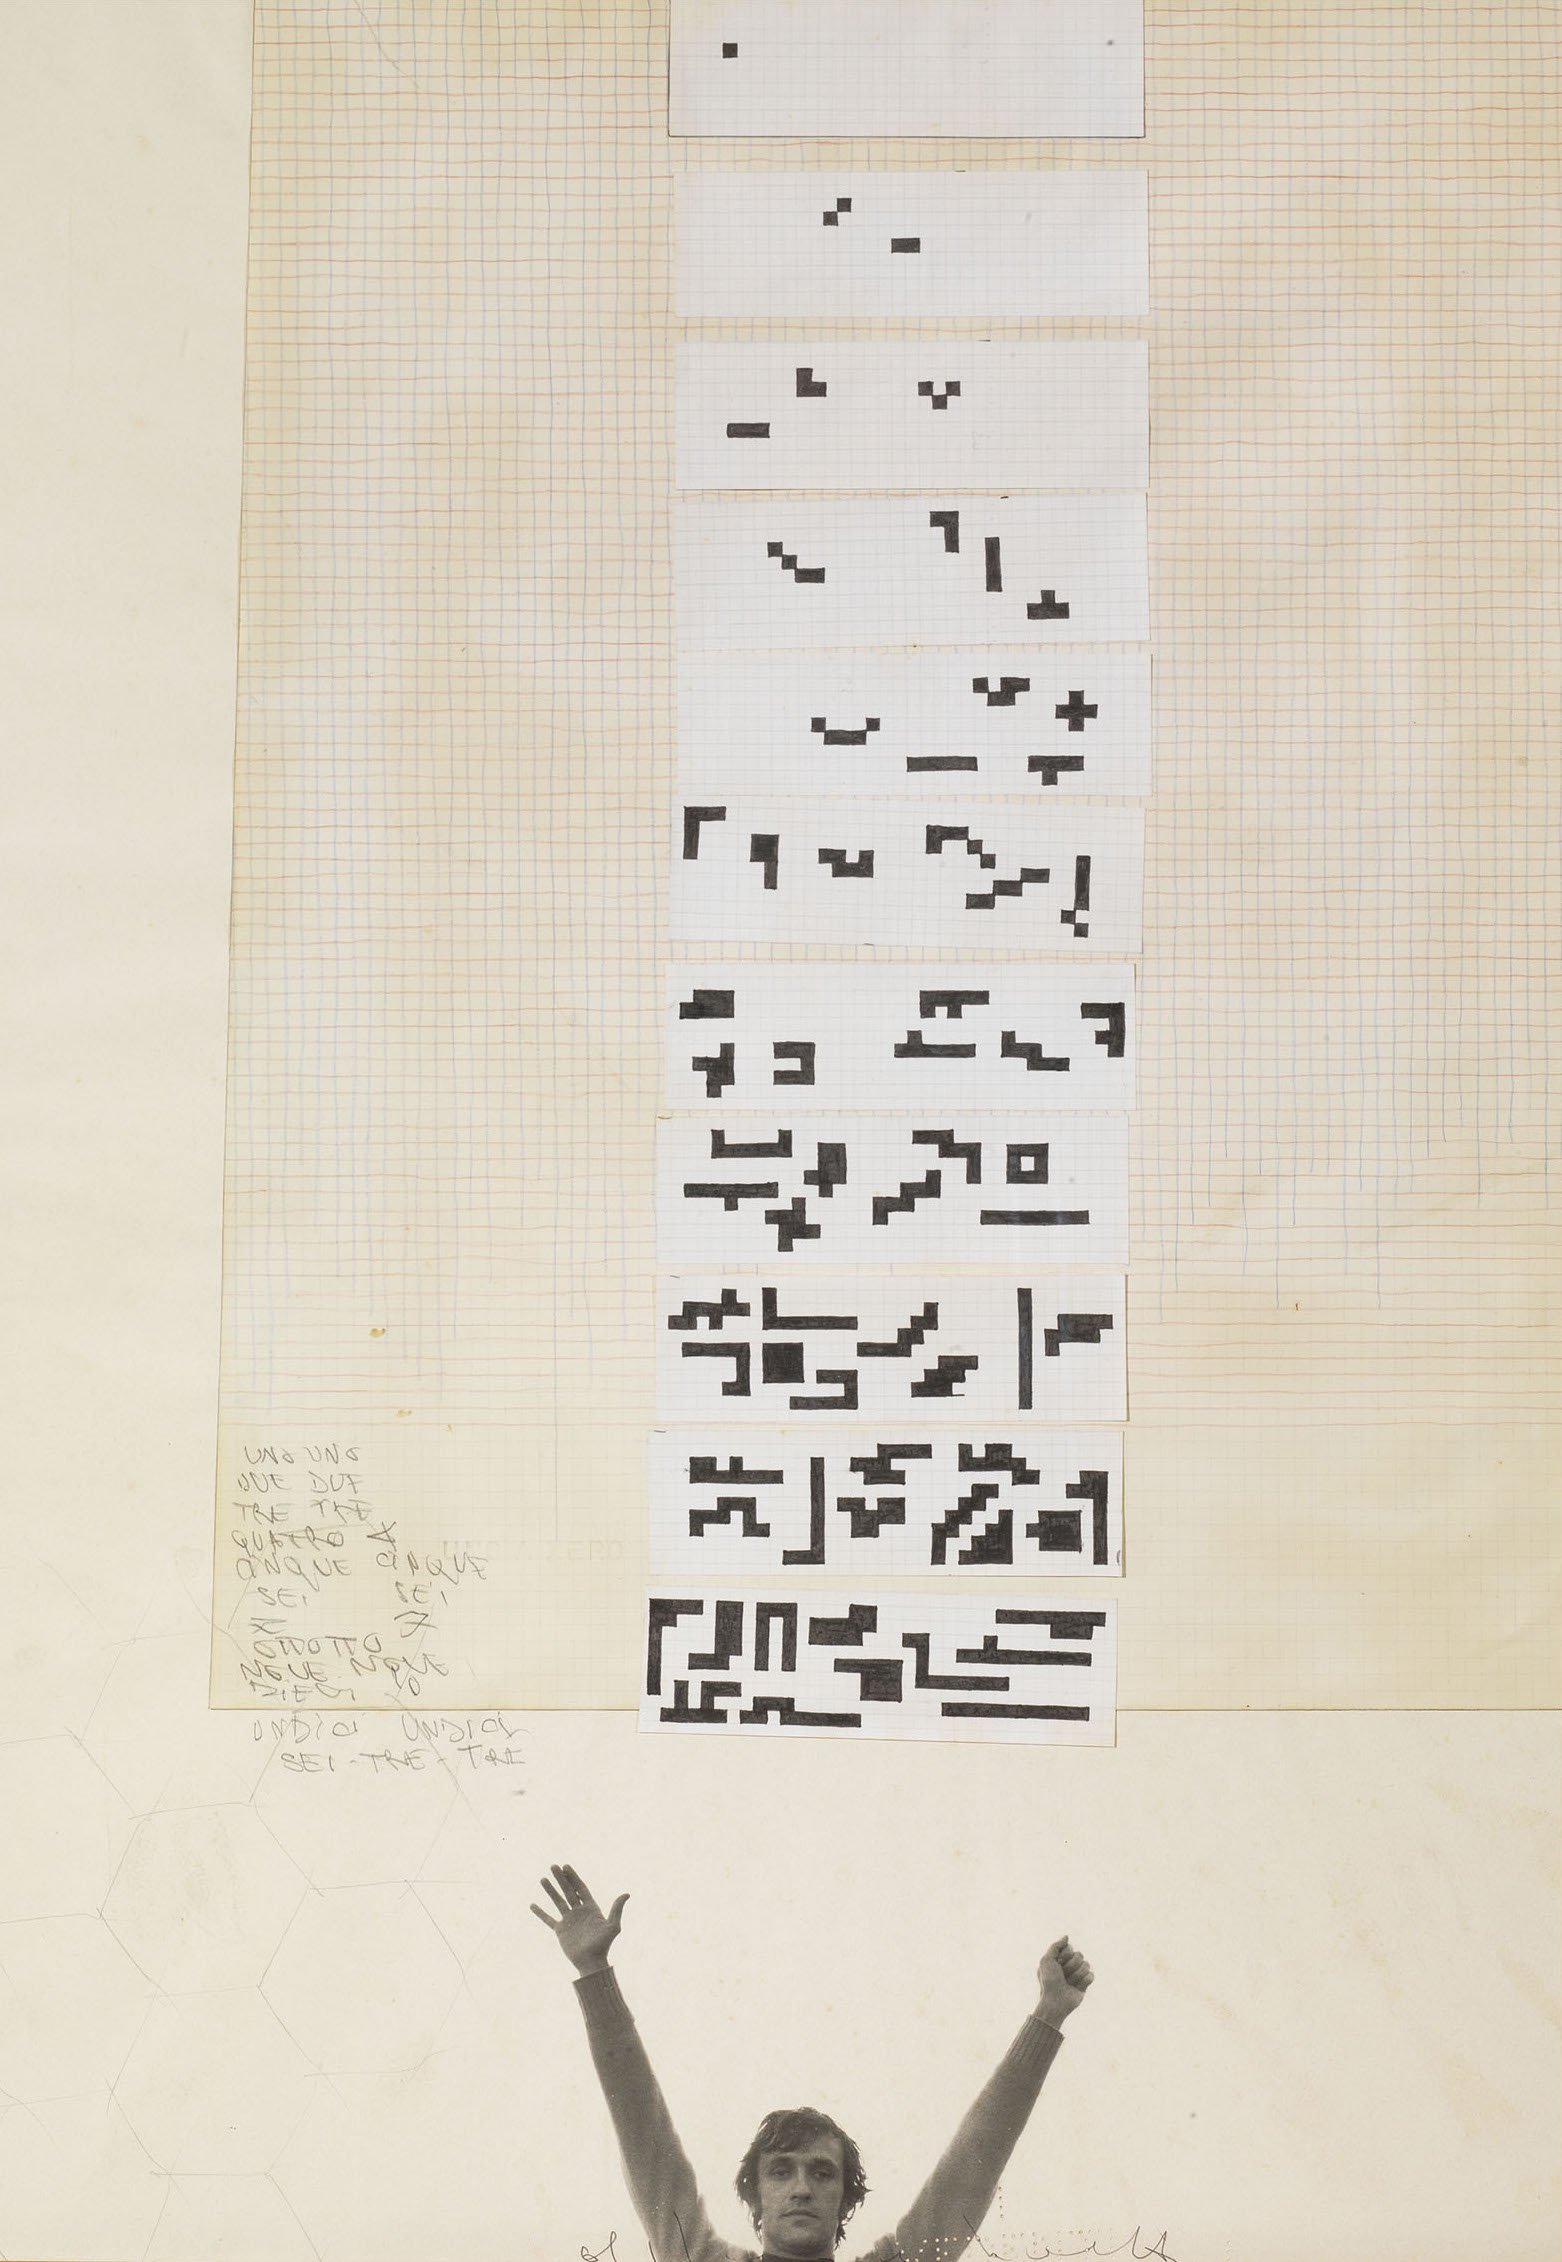 UNO UNO
DUE DUE
TRE TRE
QUATRO 4
CINQUE CINQUE
SEI SEI
7
OTTOTTO
NOVE NOVE
DIECI
UNDICI UNDICI
SEI-TRE-TRE